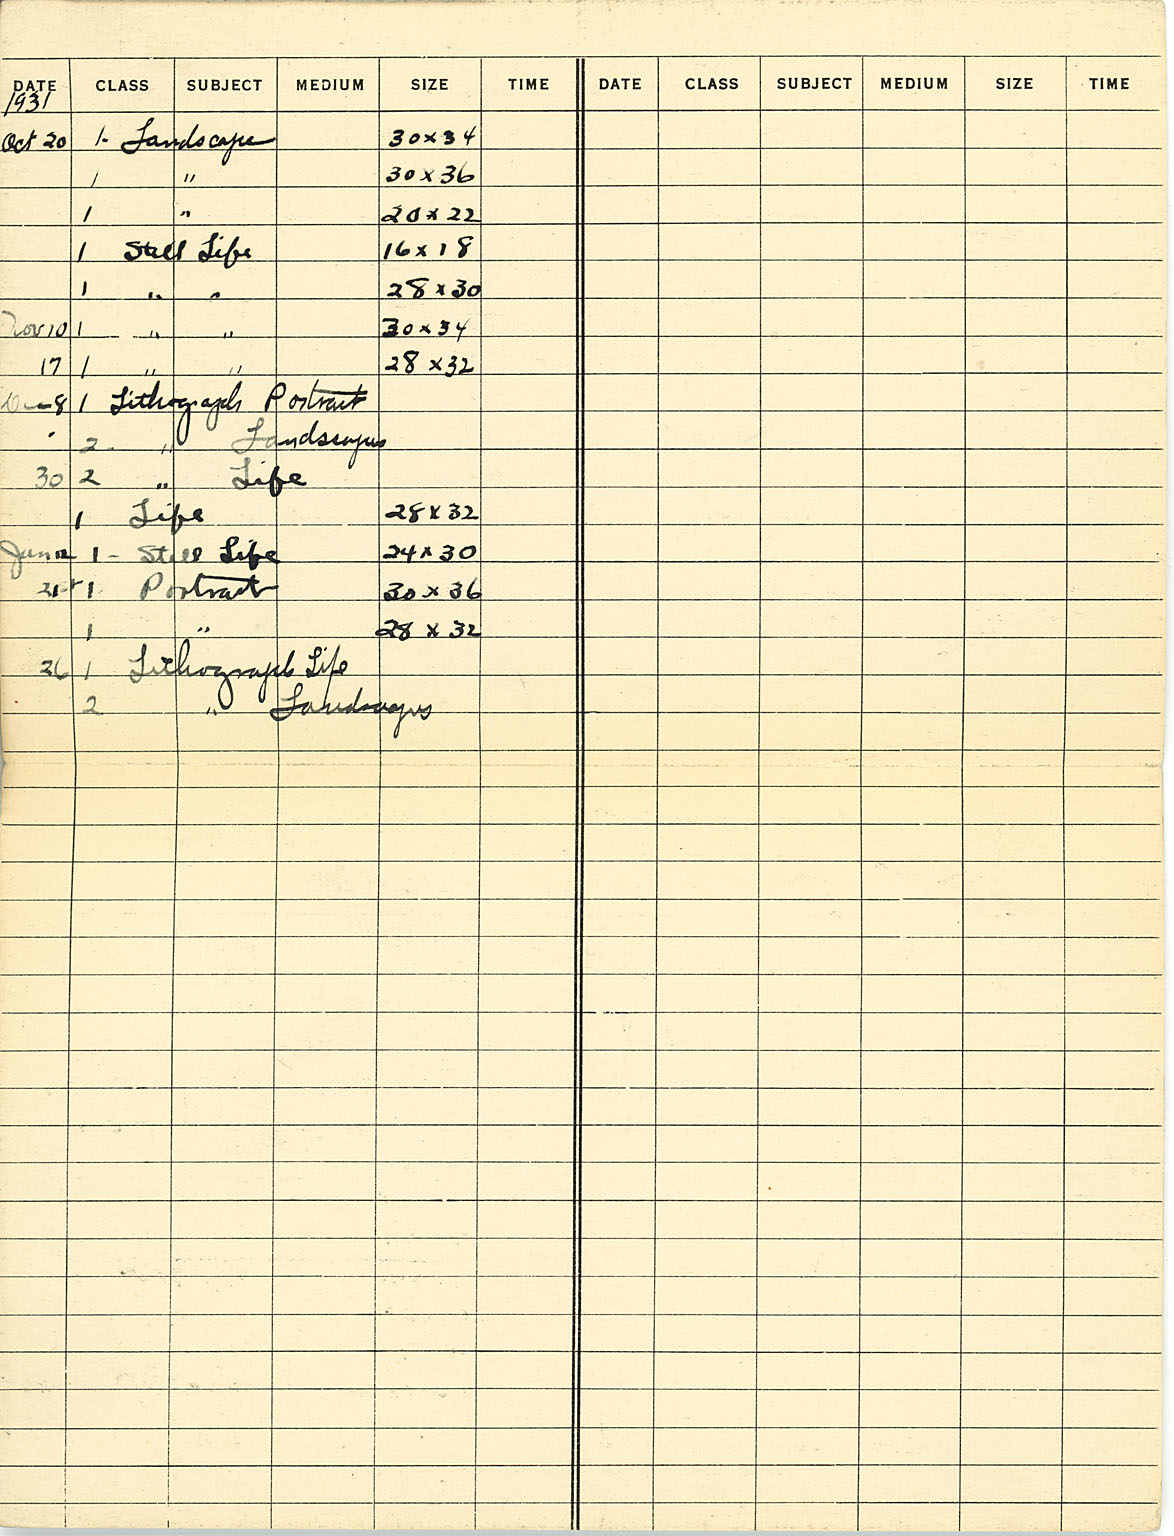 DATE CLASS SUBJECT MEDIUM SIZE TIME DATE CLASS SUBJECT MEDIUM SIZE TIME
1931
Oct 20 1- Landscape 30 x 34
1 " 30 x 36
1 " 20 x 22
1 Still Life 16 x 18
1 " " 28 x 30
Nov 10 1 " " 30 x 34
17 1 " " 28 x 32
8 1 Lithograph Portrait
" 2- " Landscapes
30 2 " Life
1 Life 28 x 32
12 1- Still Life 24 x 30
21st 1 Portrait 30 x 36
1 " 28 x 32
26 1 Lithograph Life
2 " Landscapes